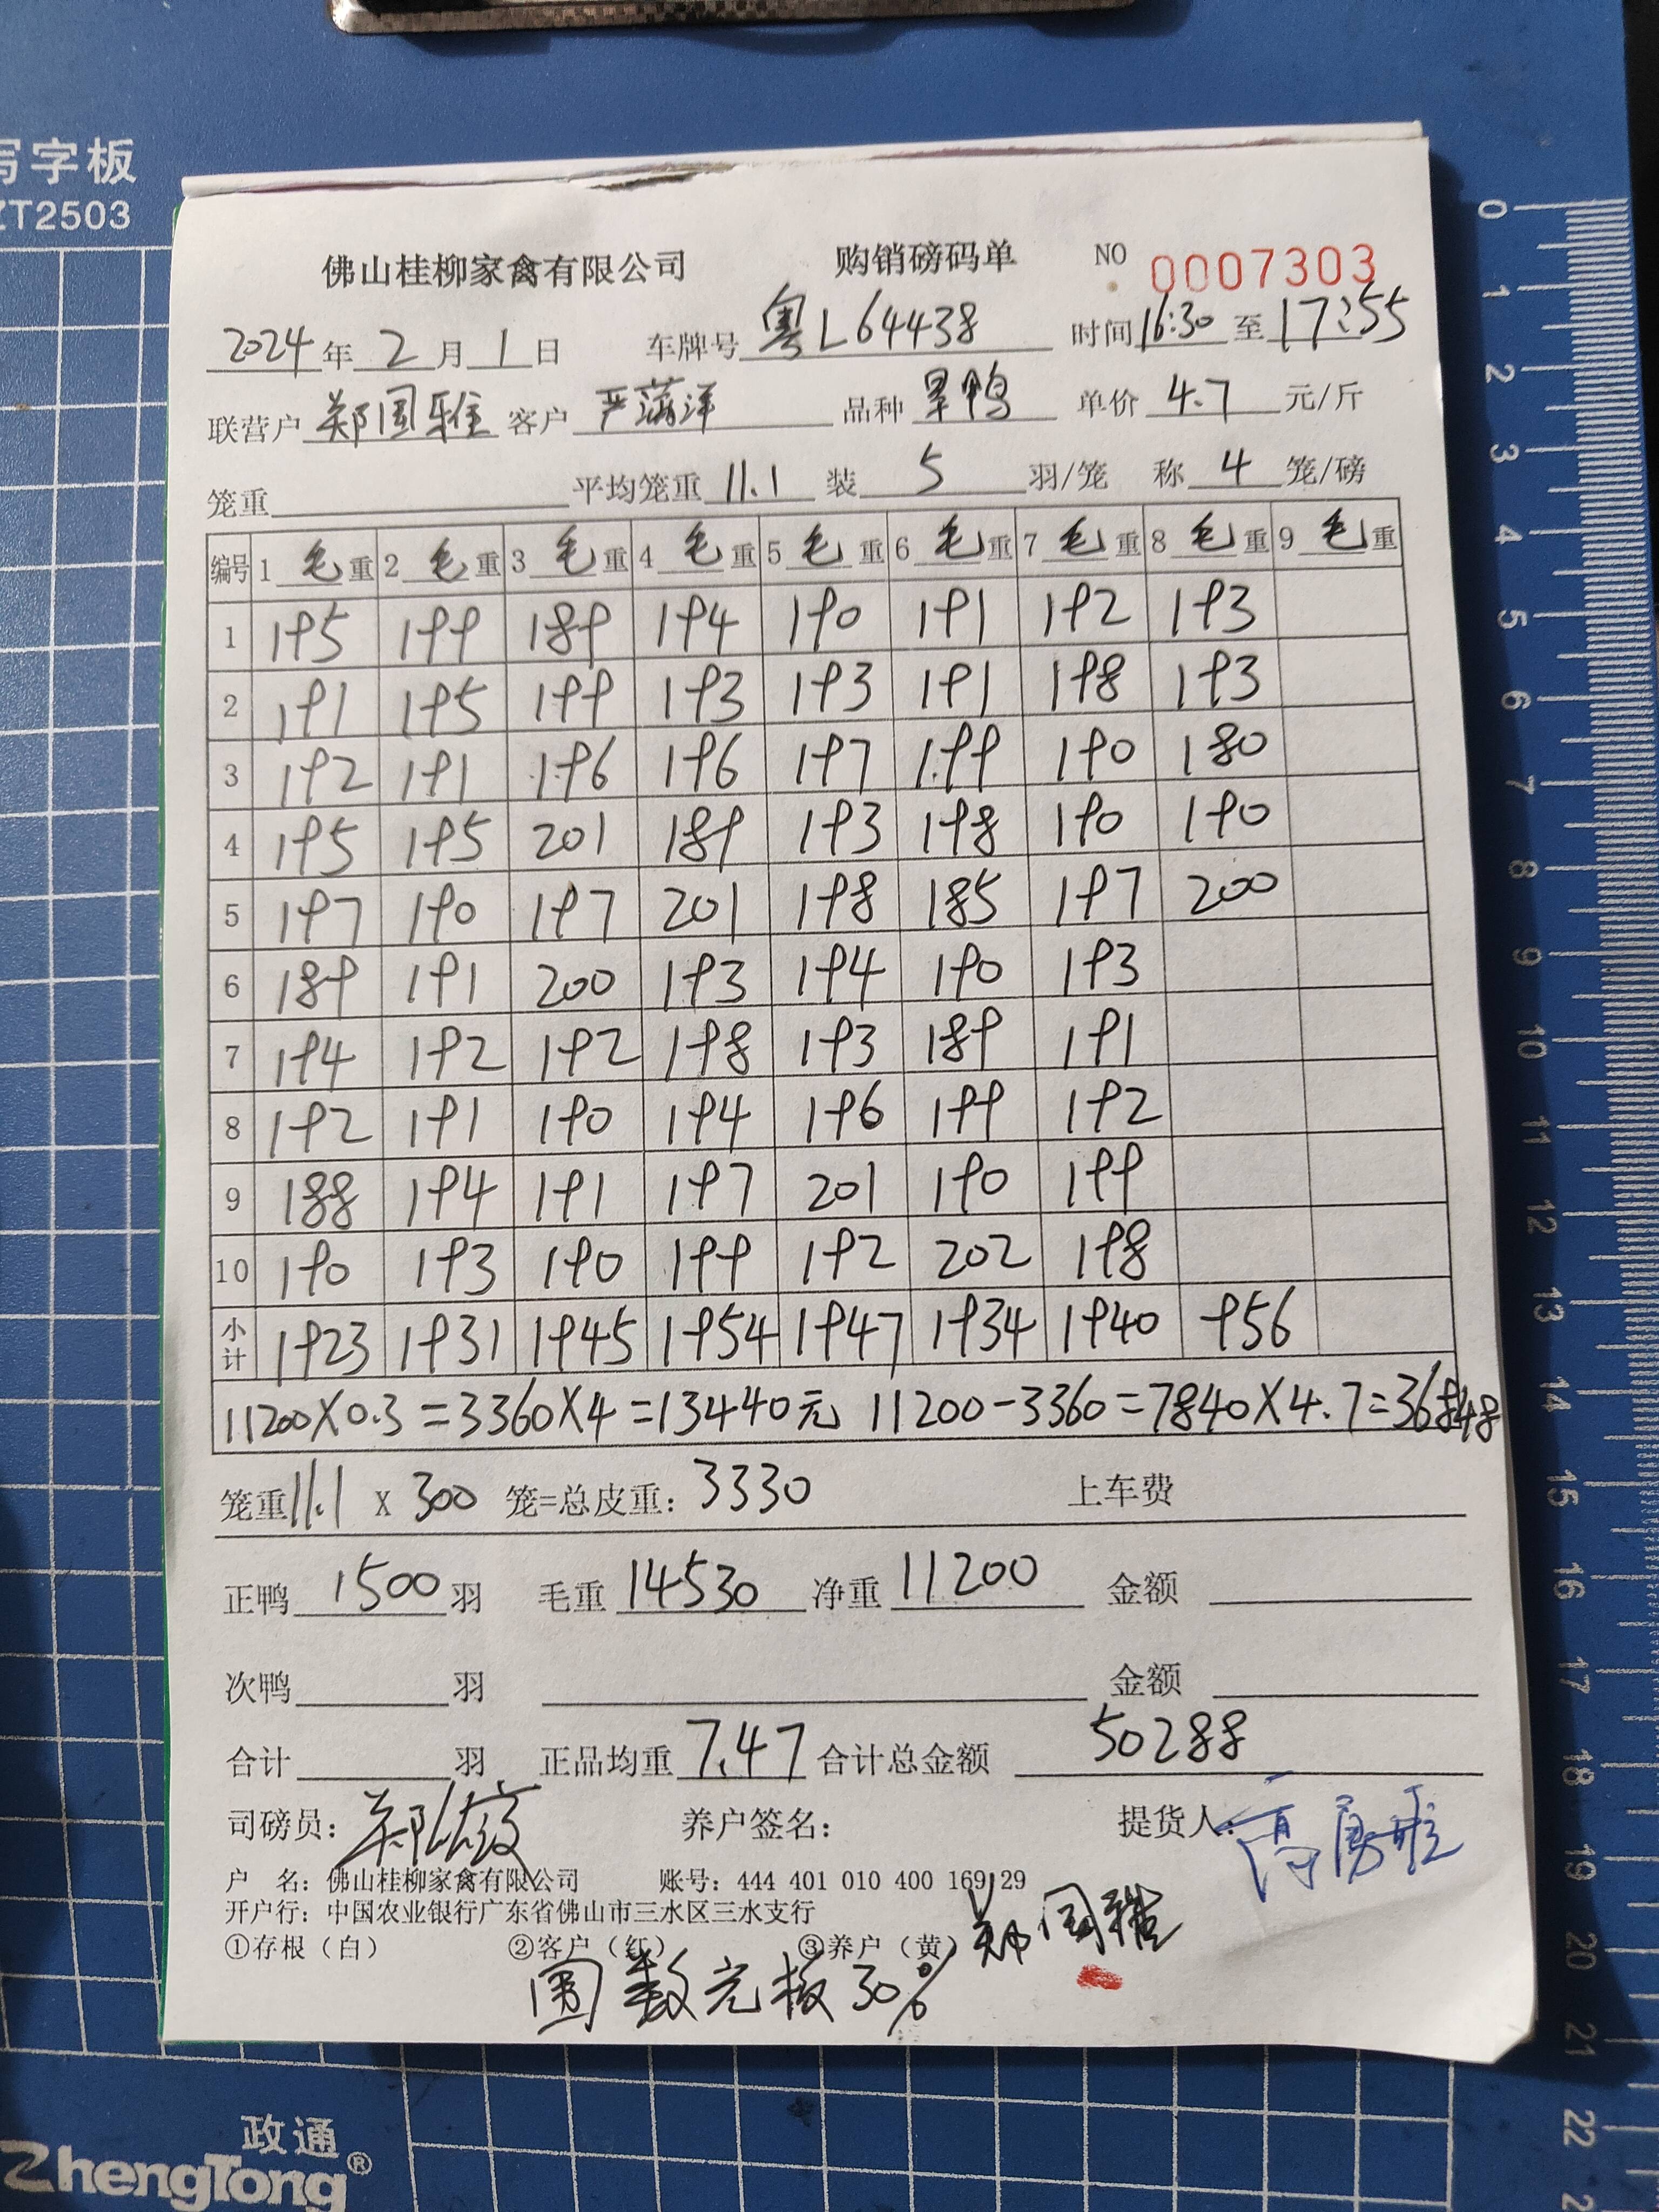 写字板
ZT2503
佛山桂柳家禽有限公司 购销磅码单 NO 0007303
2024年2月1日 车牌号粤L64438 时间16:30至17:55
联营户郑国雅客户严满洋 品种旱鸭 单价4.7元/斤
笼重 平均笼重11.1装5羽/笼 称4笼/磅
编号 1毛重 2毛重 3毛重 4毛重 5毛重 6毛重 7毛重 8毛重 9毛重
1 195 199 189 194 190 191 192 193
2 191 195 199 193 193 191 198 193
3 192 191 196 196 197 199 190 180
4 195 195 201 189 193 198 190 190
5 197 190 197 201 198 185 197 200
6 189 191 200 193 194 190 193
7 194 192 192 198 193 189 191
8 192 191 190 194 196 199 192
9 188 194 191 197 201 190 199
10 190 193 190 199 192 202 198
小计 1923 1931 1945 1954 1947 1934 1940 956
11200X0.3=3360X4=13440元 11200-3360=7840X4.7=36848
笼重11.1X300笼=总皮重:3330 上车费
正鸭1500羽 毛重14530净重11200 金额
次鸭 羽 金额
合计 羽 正品均重7.47合计总金额 50288
司磅员: 养户签名: 提货人:
户 名: 佛山桂柳家禽有限公司 账号: 444 401 010 400 169 29
开户行: 中国农业银行广东省佛山市三水区三水支行
①存根(白) ②客户(红) ③养户(黄) 郑国雅
30%
政通
ZhengTong®
0 1 2 3 4 5 6 7 8 9 10 11 12 13 14 15 16 17 18 19 20 21 22